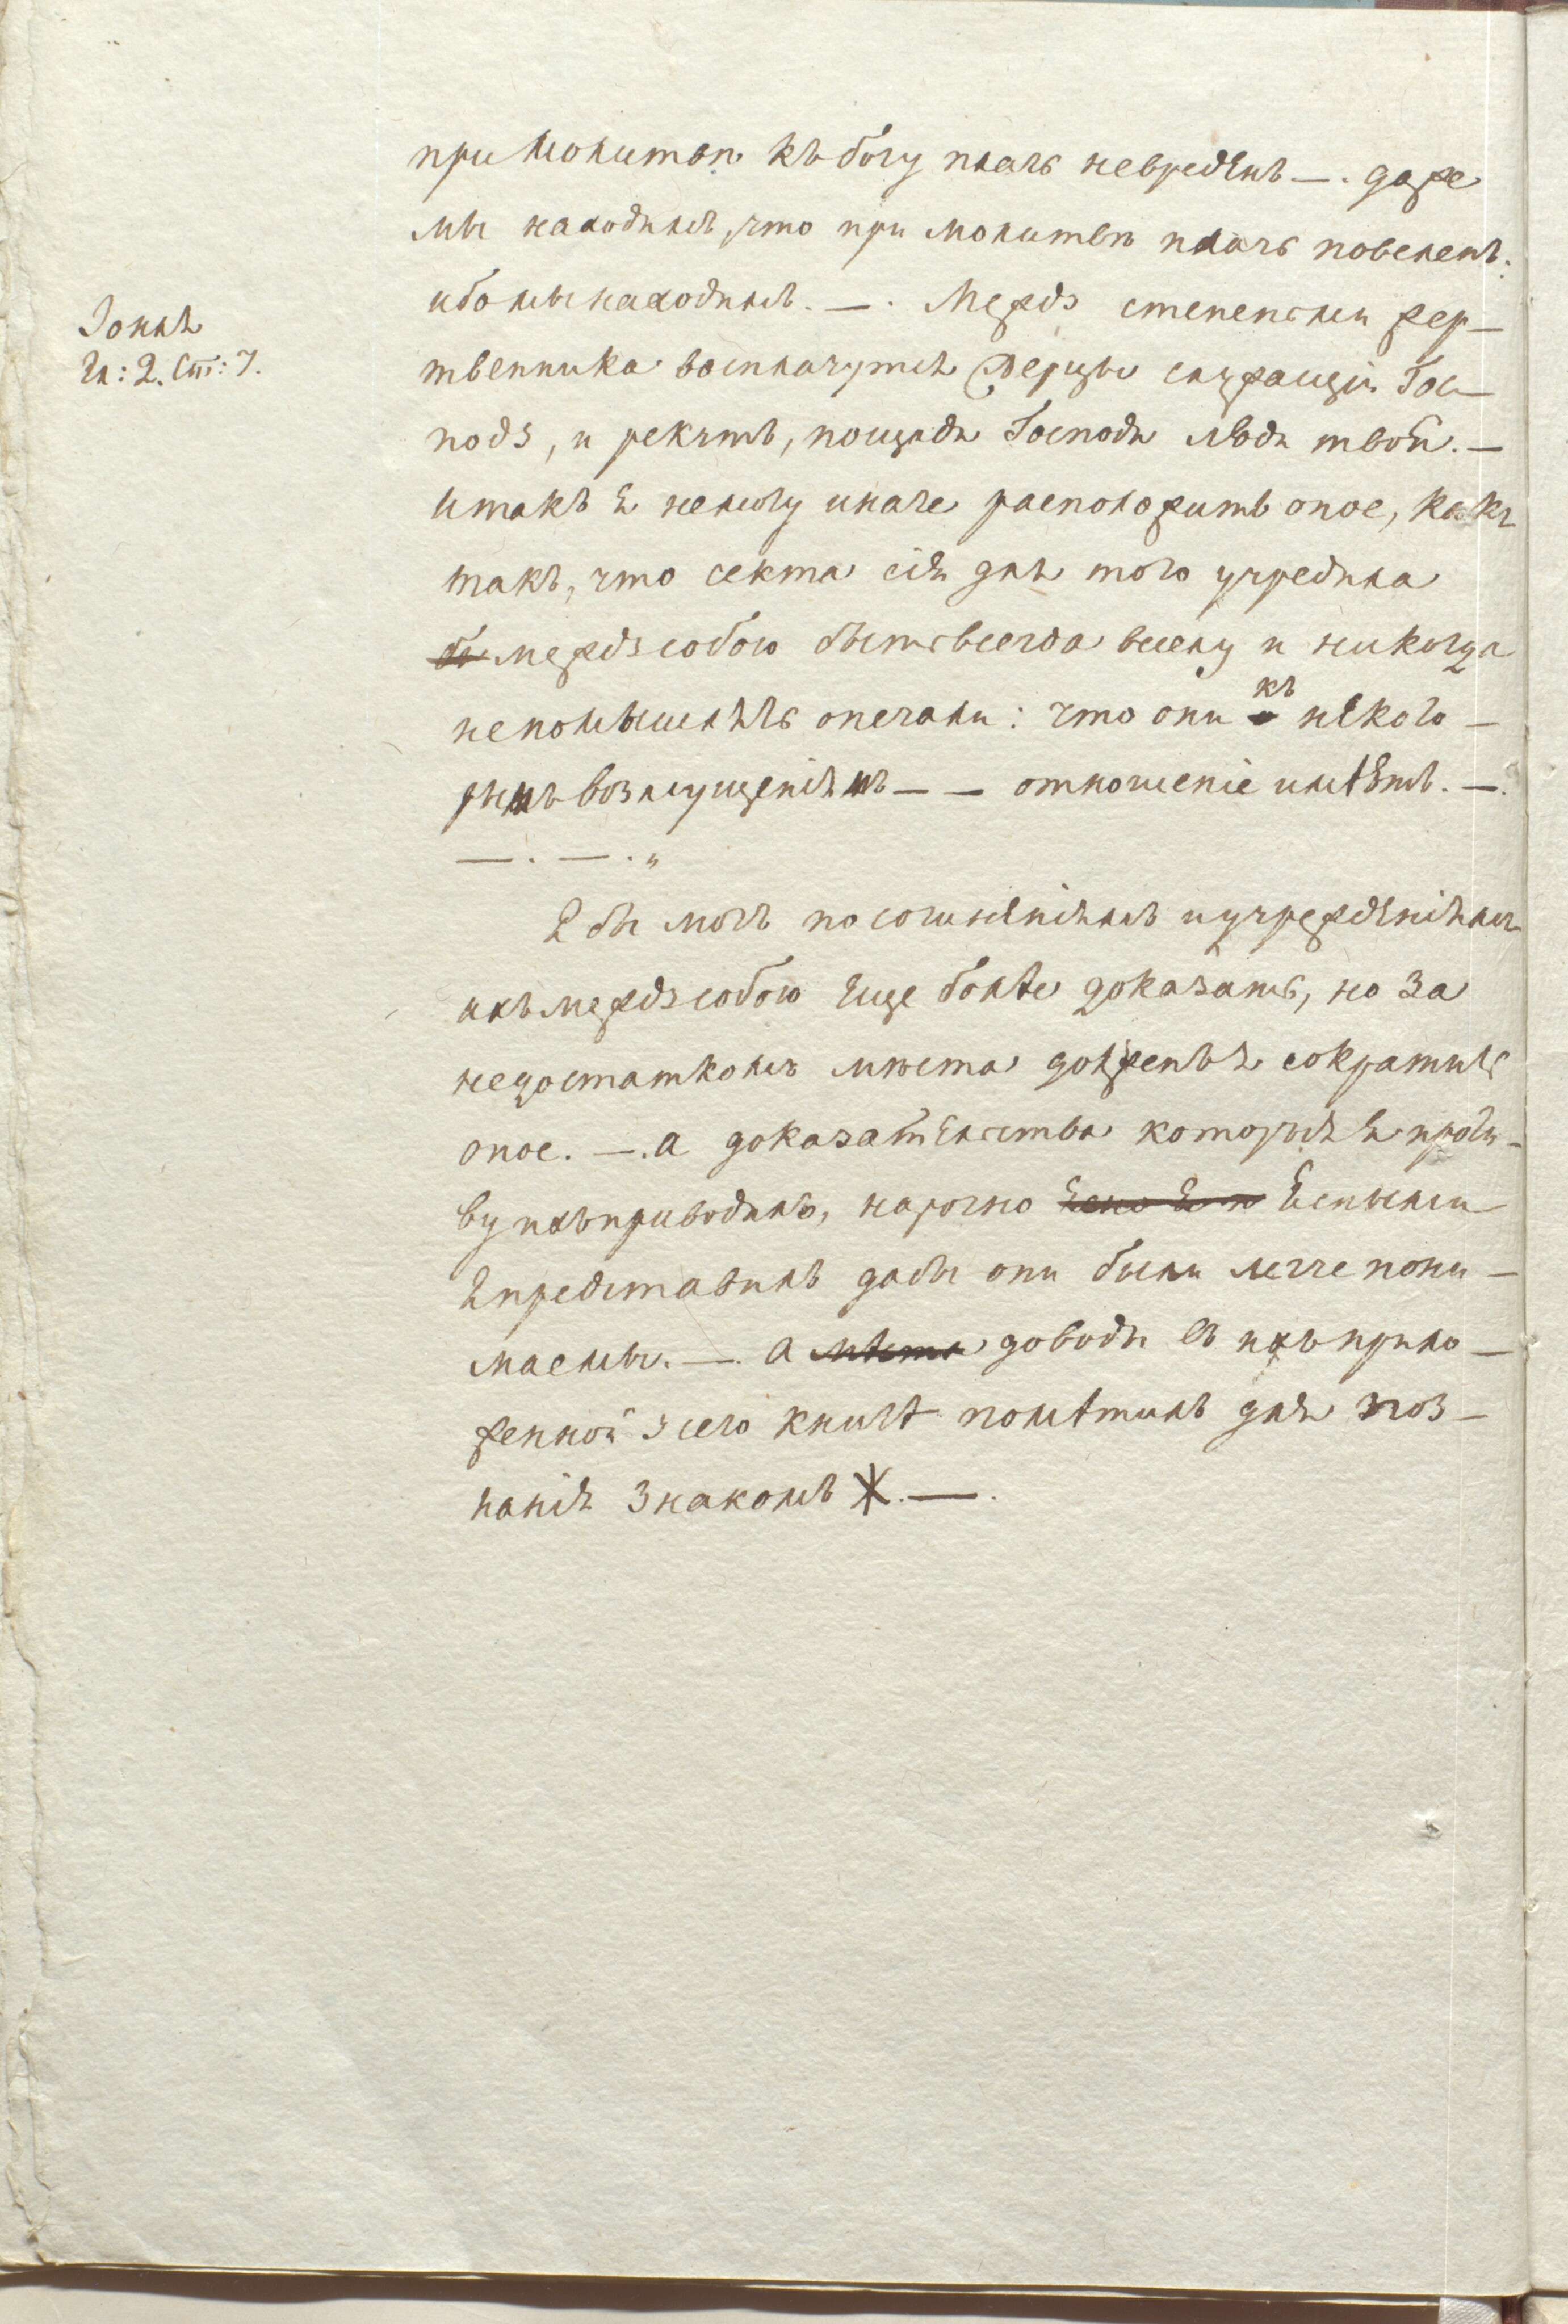 при молитвѣ къ богу плачь невредѣнъ —. даже
мы находимъ, что при молитвѣ плачь повеленъ.
ибо мы находимъ. —. Между степеньми жер—
Іоиля
Гл: 2. Ст: 7.
твенника восплачутся Жерцы служащіи Гос—
поду, и рекутъ, пощади Господи люди твои. —
Итакъ я немогу иначе расположить оное, какъ
такъ, что секта сія для того учредила
между собою быть всегда веселу и никогда
непомышлять опечали: что они къ нѣкото—
рымъ возмущеніямъ — — отношеніе имѣютъ. —.
—. —. „
Я бы могъ по сочинѣніямъ и учреждѣніямъ
ихъ между собою Еще болѣе доказать, но за
недостаткомъ мѣста долженъ я сократить
оное. —. а доказатѣльства которыя я проти—
ву ихъ приводилъ, нарочно Ясными
я представилъ дабы они были легче пони—
маемы. —. а мѣста доводы въ ихъ прило—
женной у сего книгѣ помѣтилъ для поз—
нанія знакомъ Ж. —.